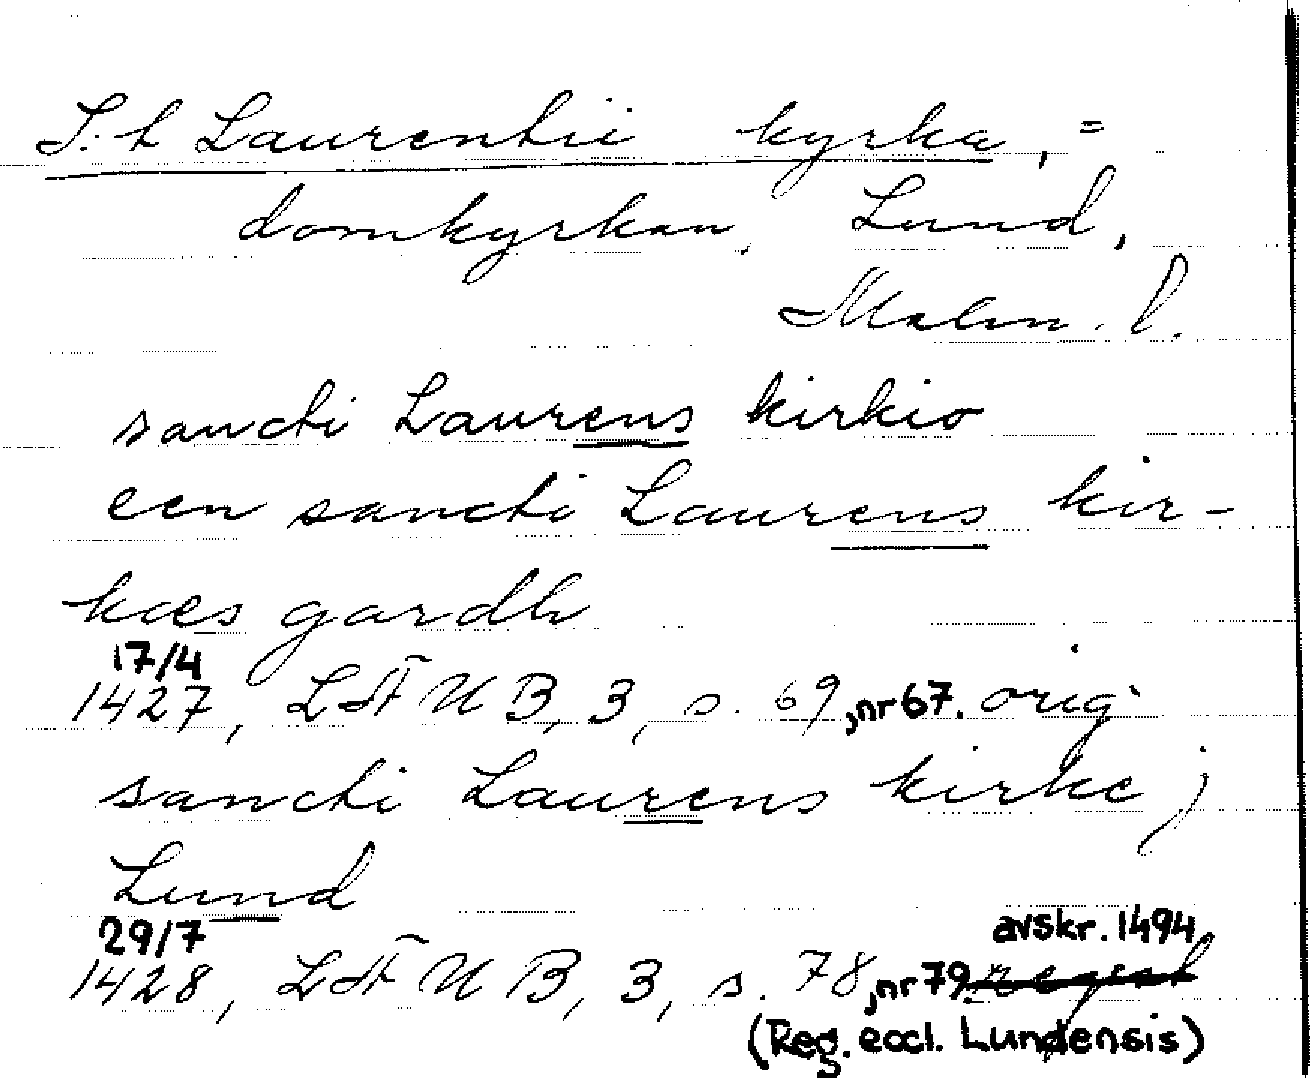 S:t Laurentii kyrka, =
domkyrkan, Lund,
Malm. l.
sancti Laurens kirkio
een sancti Laurens kir-
kæs gardh
17/4
1427, LÄUB, 3, s. 69, nr 67. orig.
sancti Laurens kirke j
Lund
29/7 avskr. 1494
1428, LÄUB, 3, s. 78, nr 79 regest
(Reg. eccl. Lundensis)